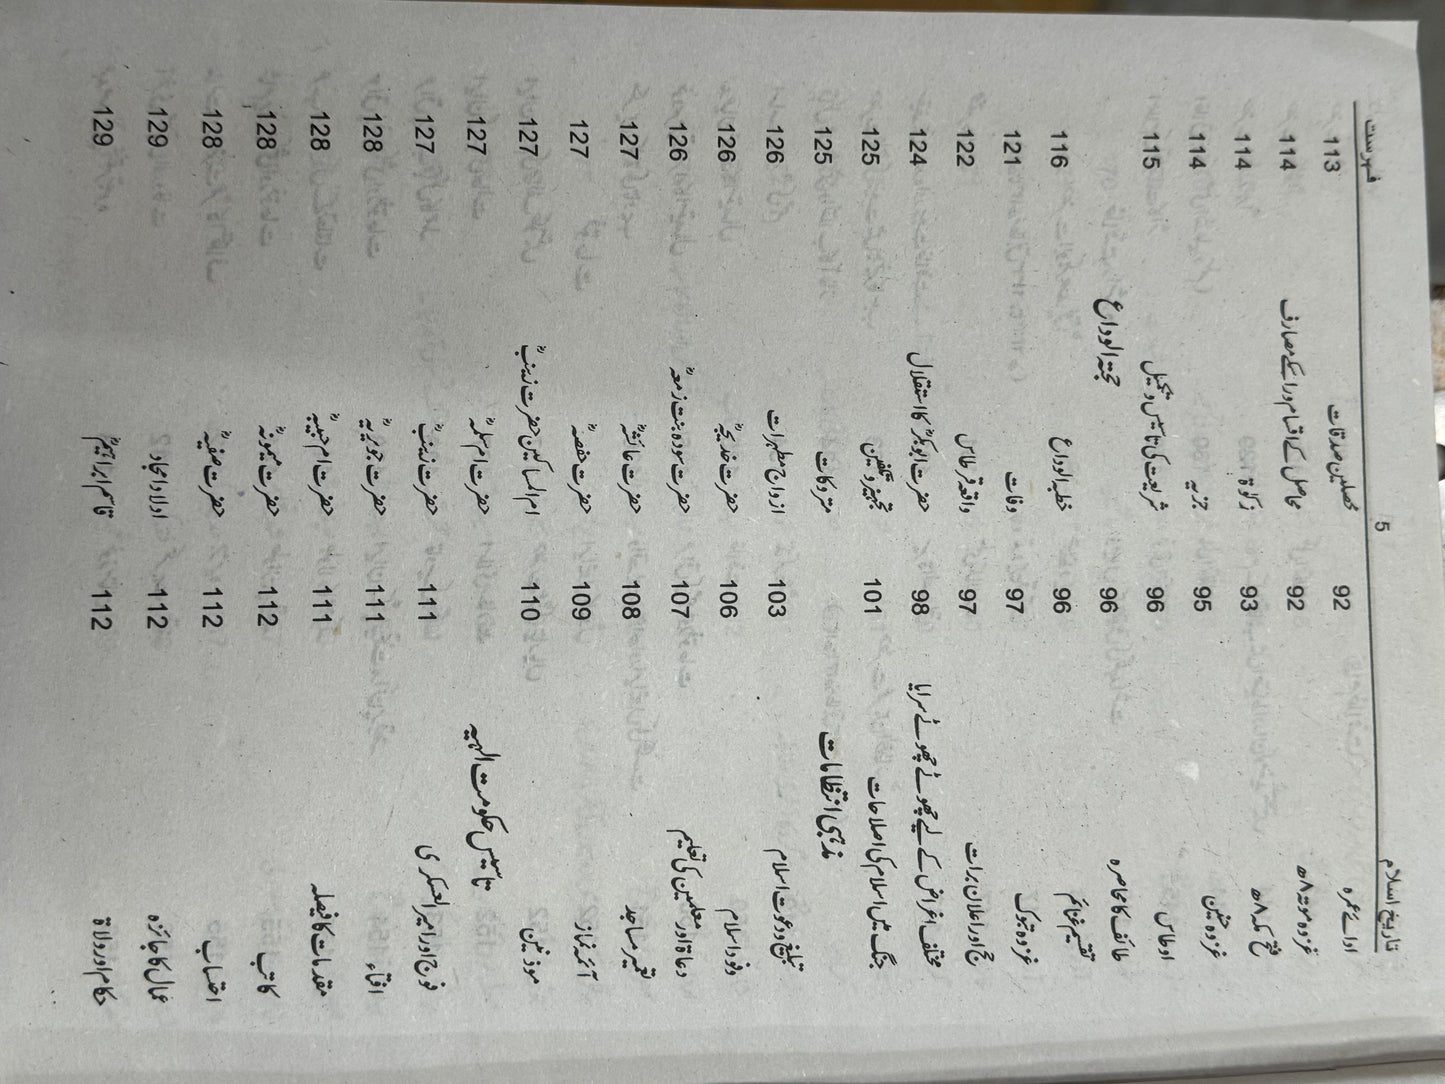 تاریخ اسلام
5
فہرست
ادائے عمرہ 92
غزوہ موتہ ۸ھ 92
فتح مکہ ۸ھ 93
غزوہ حنین 95
اوطاس 96
طائف کا محاصرہ 96
تقسیم غنائم 96
غزوہ تبوک 97
حج اور اعلان برات 97
مختلف اغراض کے لیے چھوٹے چھوٹے سرایا 98
جنگ میں اسلام کی اصلاحات 101
مذہبی انتظامات
تبلیغ و دعوت اسلام 103
وفود اسلام 106
دعاۃ اور معلمین کی تعلیم 107
تعمیر مساجد 108
آئمہ نماز 109
موذنین 110
تاسیس حکومت الہیہ
فوج اور امیر العسکری 111
افتاء 111
مقدمات کا فیصلہ 111
کاتب 112
احتساب 112
عمال کا جائزہ 112
حکام اور ولاۃ 112
محصلین صدقات 113
محاصل کے اقسام اور انکے مصارف 114
زکوٰۃ 114
جزیہ 114
شریعت کی تاسیس و تکمیل 115
حجۃ الوداع
خطبہ الوداع 116
وفات 121
واقعہ قرطاس 122
حضرت ابوبکرؓ کا استقلال 124
تجہیز و تکفین 125
متروکات 125
ازواج مطہرات 126
حضرت خدیجہؓ 126
حضرت سودہ بنت زمعہؓ 126
حضرت عائشہؓ 127
حضرت حفصہؓ 127
ام المساکین حضرت زینبؓ 127
حضرت ام سلمہؓ 127
حضرت زینبؓ 127
حضرت جویریہؓ 128
حضرت ام حبیبہؓ 128
حضرت میمونہؓ 128
حضرت صفیہؓ 128
اولاد امجاد 129
قاسم ابراہیمؓ 129